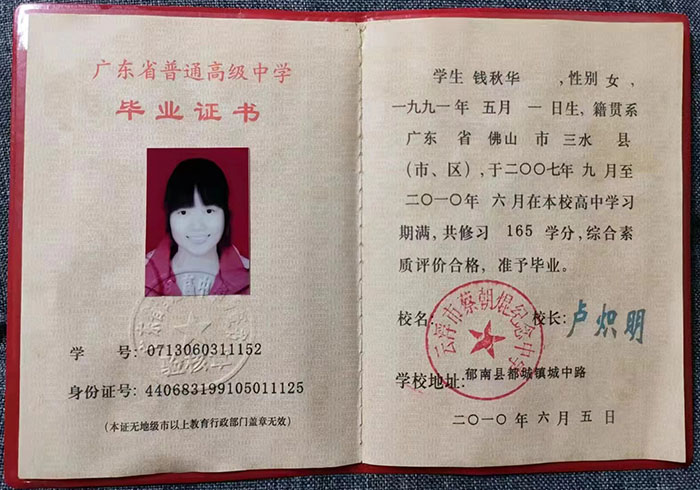 广东省普通高级中学
毕业证书
学 号: 0713060311152
身份证号: 440683199105011125
(本证无地级市以上教育行政部门盖章无效)
学生 钱秋华 ,性别 女 ,
一九九一年 五月 一 日生, 籍贯系
广东 省 佛山 市 三水 县
(市、区), 于二〇〇七年 九 月至
二〇一〇年 六 月在本校高中学习
期满, 共修习 165 学分, 综合素
质评价合格, 准予毕业。
校名: 校长: 卢炽明
云浮市蔡朝焜纪念中学
学校地址: 郁南县都城镇城中路
二〇一〇年 六 月 五 日